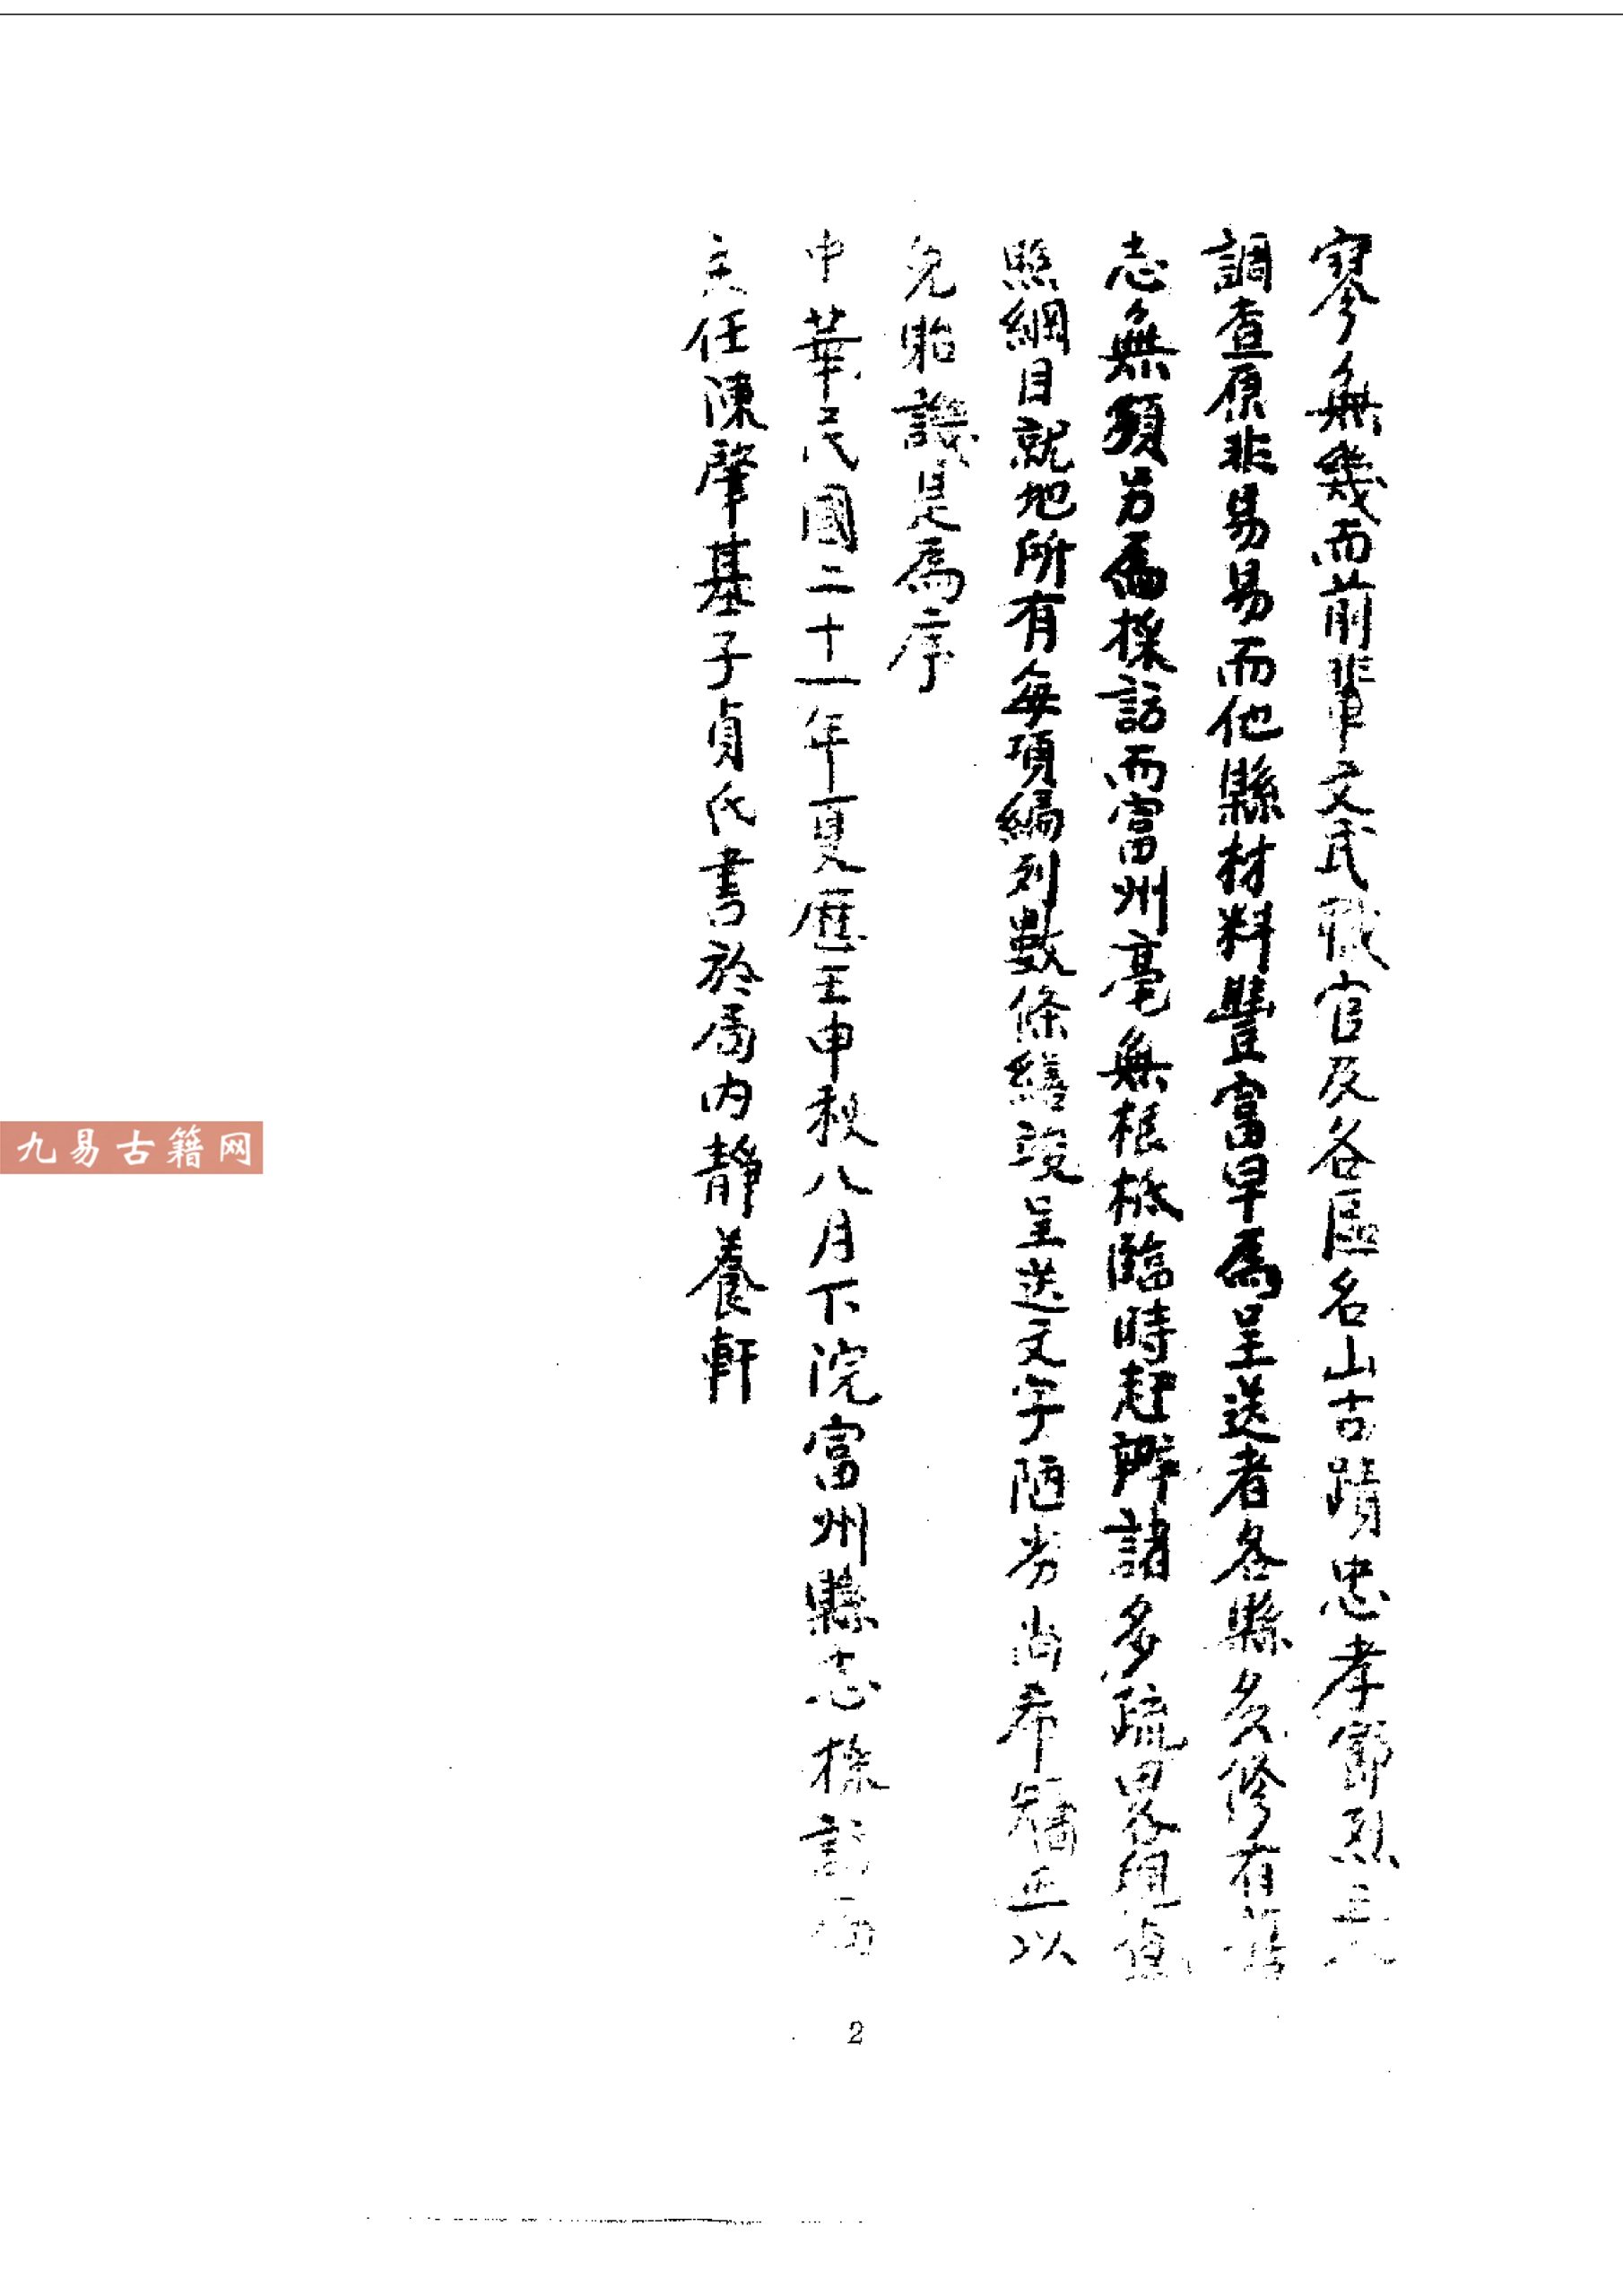 寥無幾而前輩文武職官及各區名山古蹟忠孝節烈之人
調查原非易易而他縣材料豐富早為呈送者各縣多修有舊
志無須另為採訪而富州毫無根柢臨時趕辦諸多疏畧組值
照綱目就地所有每項編列數條繕竣呈送文字陋劣尚希矯正以
免貽譏是為序
中華民國二十一年夏歷壬申秋八月下浣富州縣志採訪局
主任陳肇基子貞氏書於局内靜養軒
2
九易古籍网